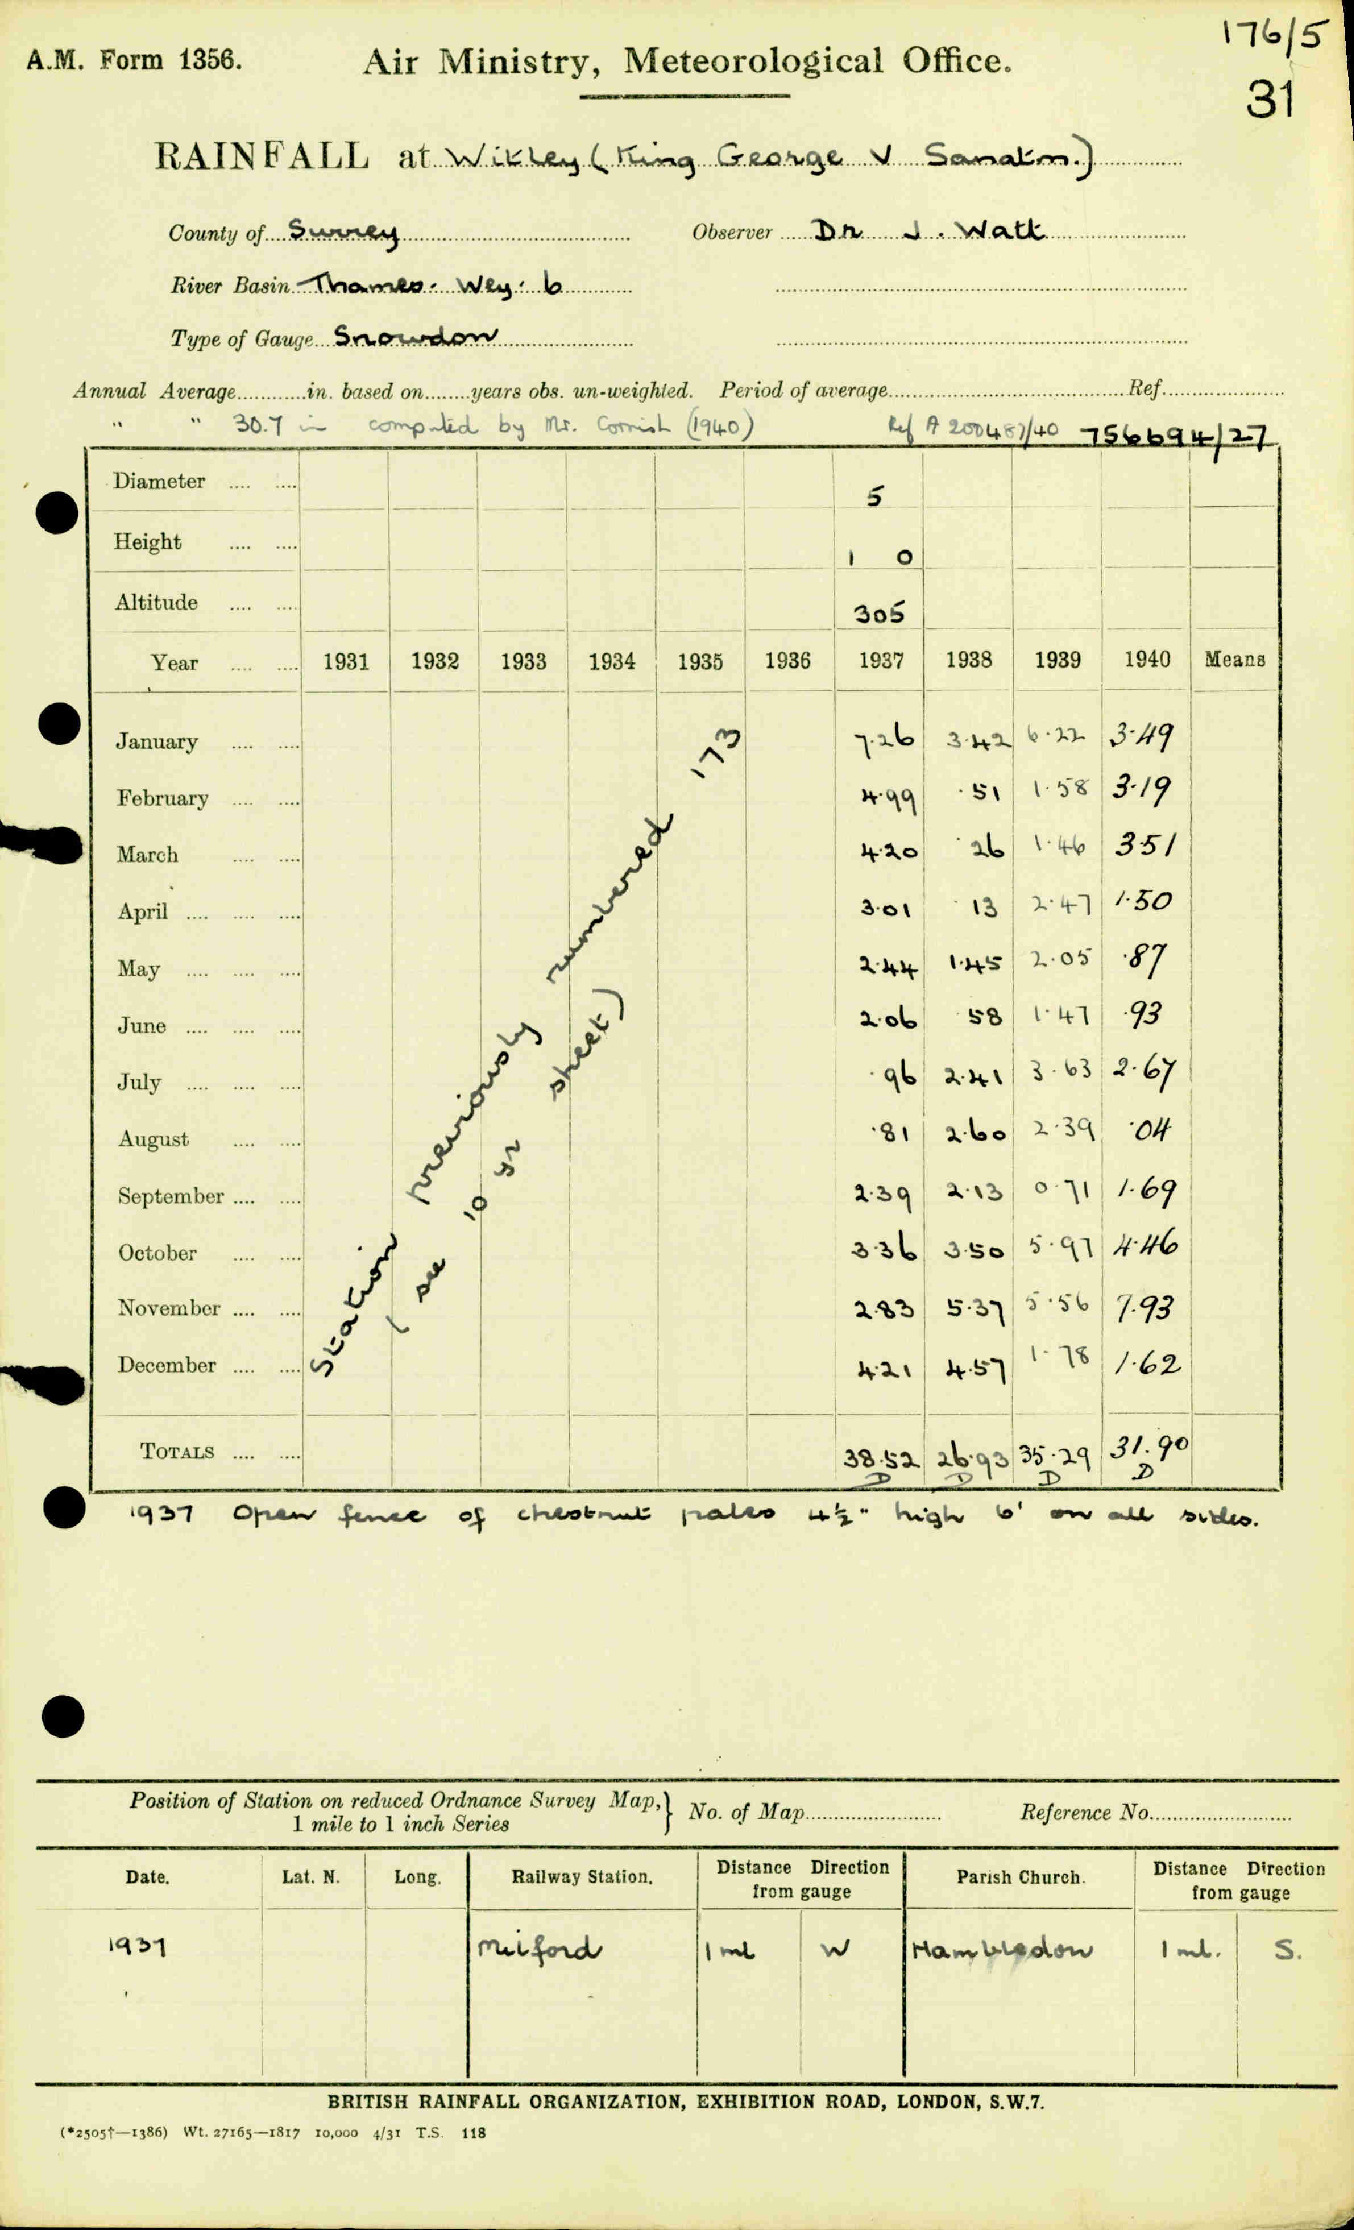 176/5
A.M. Form 1356. Air Ministry, Meteorological Office.
31
RAINFALL at Witley (King George V Sanatm.)
County of Surrey Observer Dr J. Watt
River Basin Thames. Wey. 6
Type of Gauge Snowdon
Annual Average in. based on years obs. un-weighted. Period of average Ref.
" " 30.7 in computed by Mr. Cornish (1940) Ref A 200487/40 756694/27
Diameter 5
Height 1 0
Altitude 305
Year 1931 1932 1933 1934 1935 1936 1937 1938 1939 1940 Means
January 7.26 3.42 6.22 3.49
February 4.99 .51 1.58 3.19
March 4.20 .26 1.46 3.51
April 3.01 .13 2.47 1.50
May 2.44 1.45 2.05 .87
June 2.06 .58 1.47 .93
July .96 2.41 3.63 2.67
August .81 2.60 2.39 .04
September 2.39 2.13 0.71 1.69
October 3.36 3.50 5.97 4.46
November 2.83 5.37 5.56 7.93
December 4.21 4.57 1.78 1.62
Station previously numbered 173
(see 10 yr sheet)
TOTALS 38.52 26.93 35.29 31.90
D D D D
1937 Open fence of chestnut pales 4½" high 6' on all sides.
Position of Station on reduced Ordnance Survey Map,} No. of Map Reference No.
1 mile to 1 inch Series
Date. Lat. N. Long. Railway Station. Distance Direction from gauge Parish Church. Distance Direction from gauge
1937 Milford 1 ml W Hambledon 1 ml. S.
BRITISH RAINFALL ORGANIZATION, EXHIBITION ROAD, LONDON, S.W.7.
(*2505†—1386) Wt. 27165—1817 10,000 4/31 T.S. 118